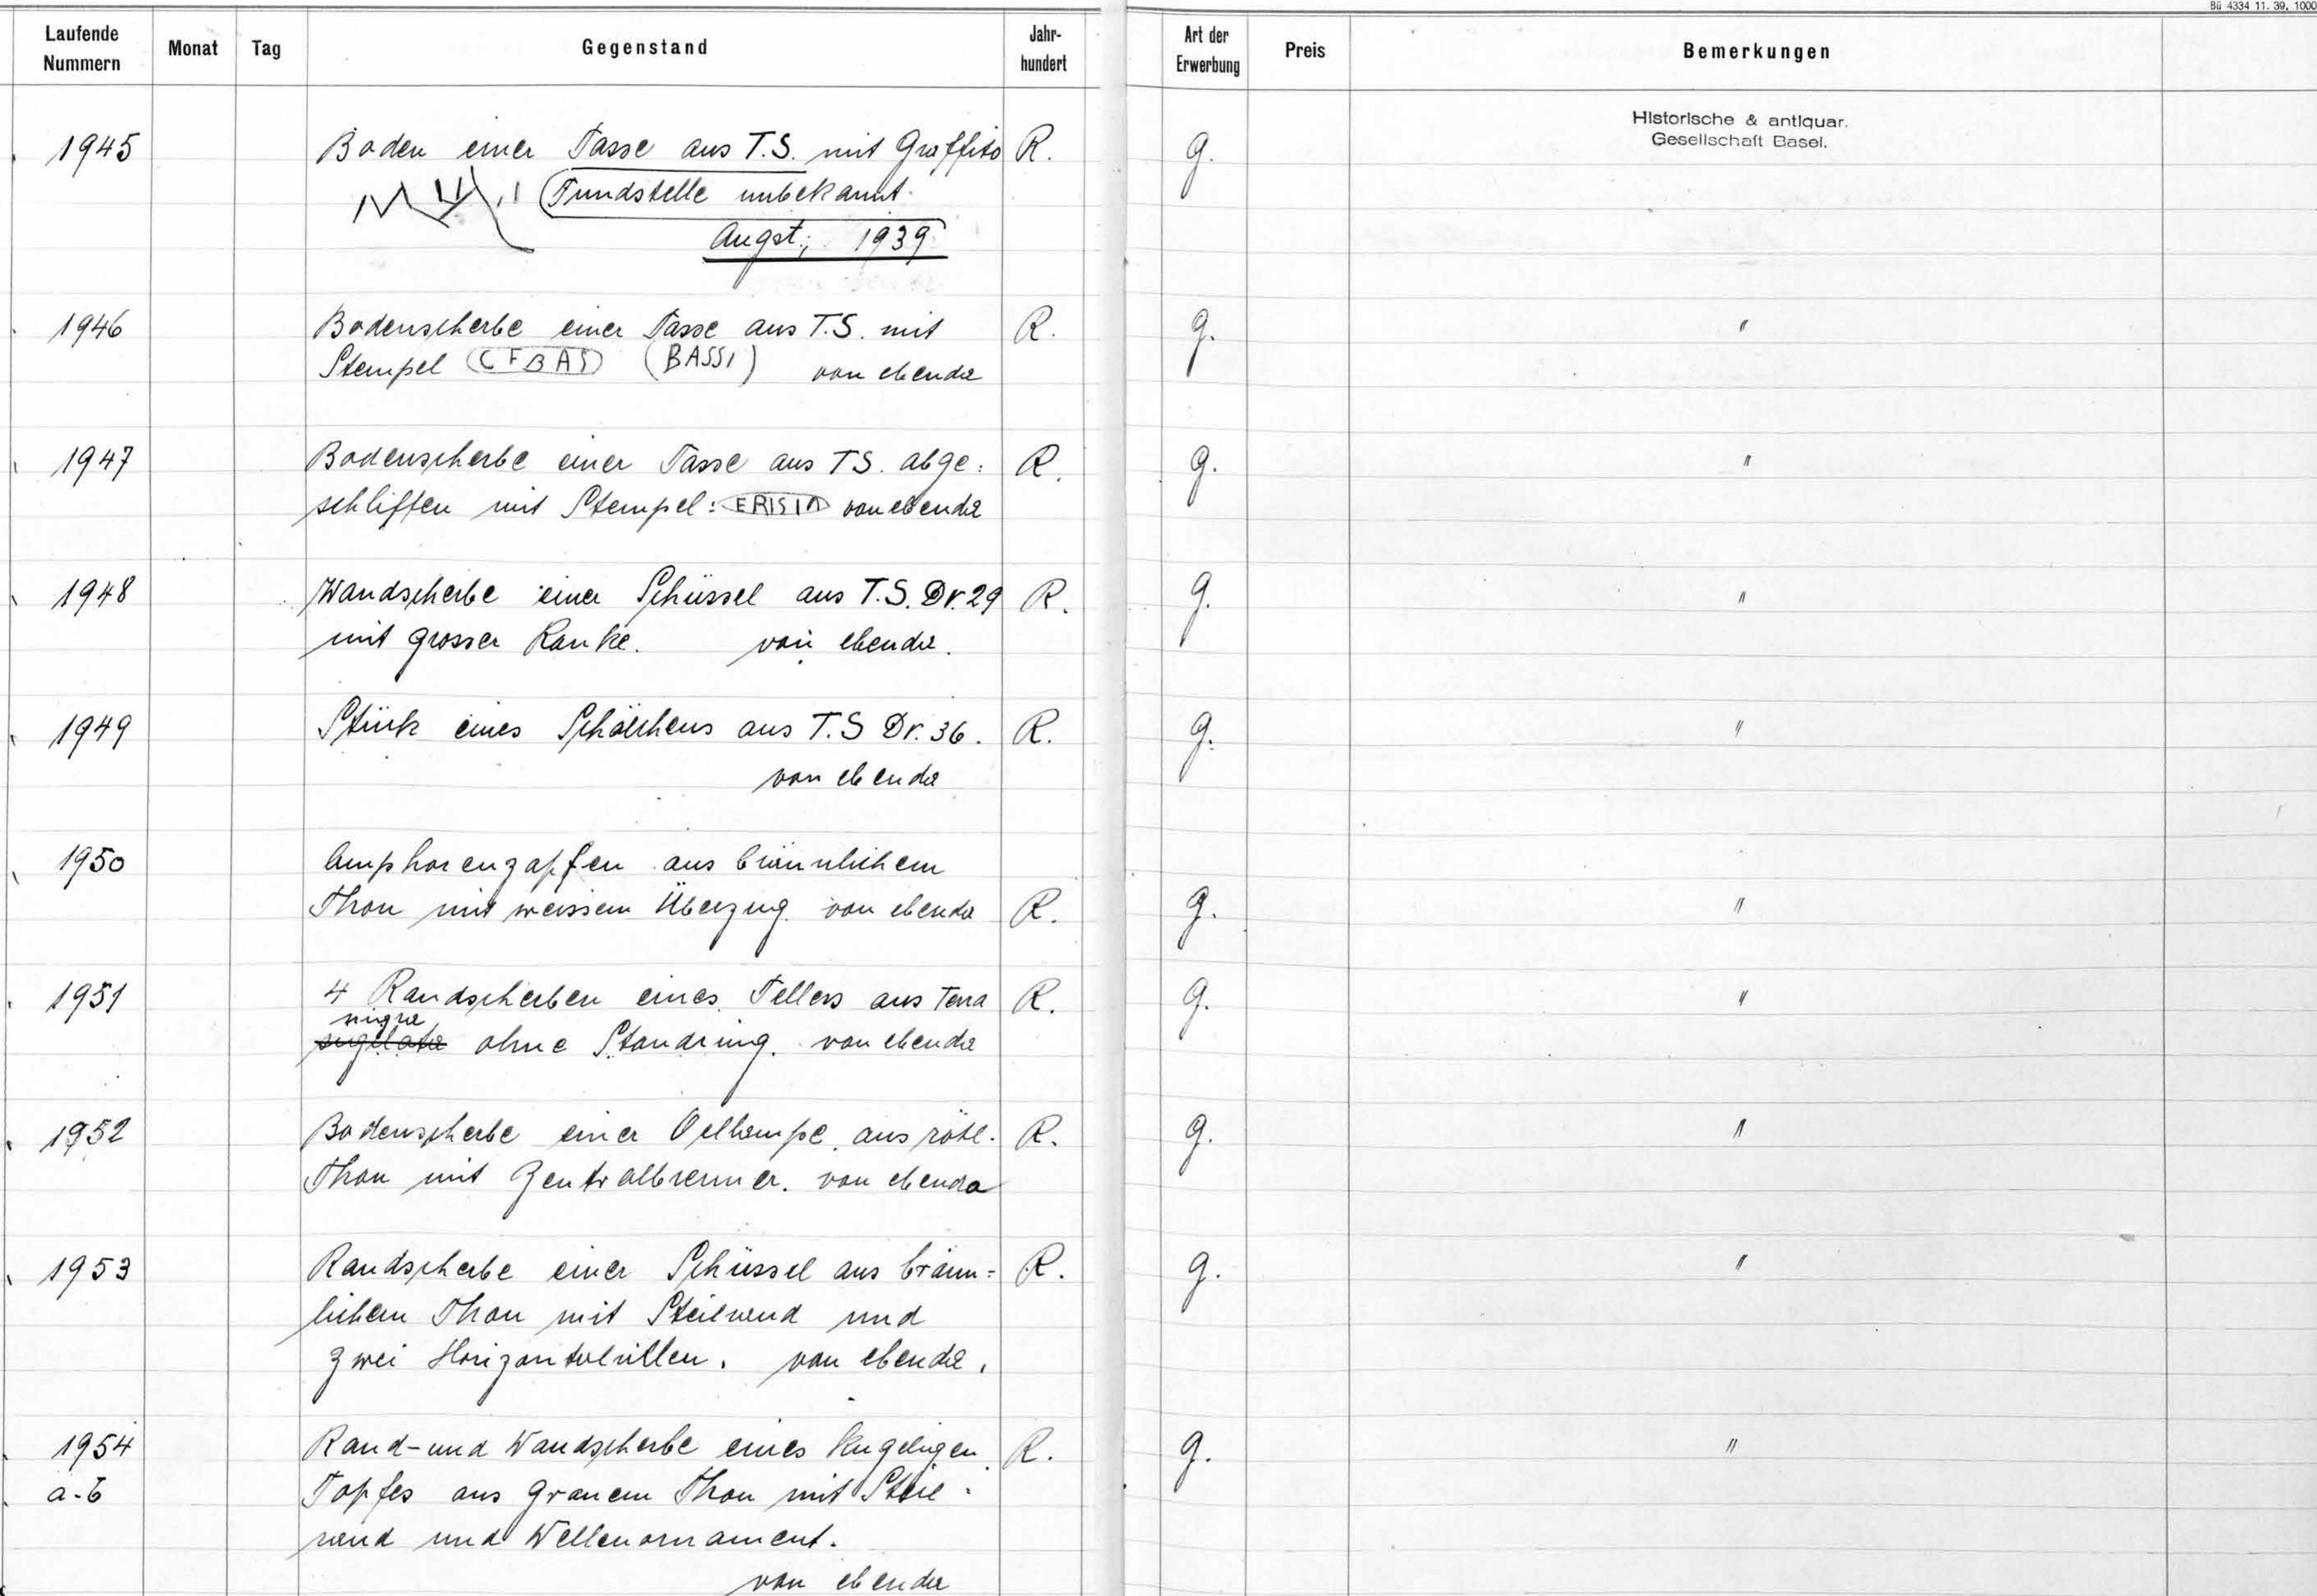 Bü 4334 11. 39. 1000
Laufende Nummern Monat Tag Gegenstand Jahr-hundert Art der Erwerbung Preis Bemerkungen
Historische & antiquar.
Gesellschaft Basel.
1945 Boden einer Tasse aus T.S. mit Graffito R. g.
Fundstelle unbekannt.
Augst, 1939
1946 Bodenscherbe einer Tasse aus T.S. mit R. g. "
Stempel CFBAS (BASSI) von ebenda
1947 Bodenscherbe einer Tasse aus TS. abge: R. g. "
schliffen mit Stempel: von ebenda
1948 Wandscherbe einer Schüssel aus T.S. Dr. 29 R. g. "
mit grosser Ranke. von ebenda.
1949 Stück eines Schälchens aus T.S Dr. 36. R. g. "
von ebenda
1950 Amphorenzapfen aus bräunlichem
Thon mit weissem Überzug. von ebenda R. g. "
1951 4 Randscherben eines Tellers aus Terra R. g. "
nigra
sigilata ohne Standring. von ebenda
1952 Bodenscherbe einer Oellampe, aus rötl. R. g. "
Thon mit Zentralbrenner. von ebenda
1953 Randscherbe einer Schüssel aus bräun= R. g. "
lichem Thon mit Steilwand und
zwei Horizontalrillen. von ebenda.
1954 Rand- und Wandscherbe eines kugeligen R. g. "
a-b Topfes aus grauem Thon mit Steil=
wand und Wellenornament.
von ebenda